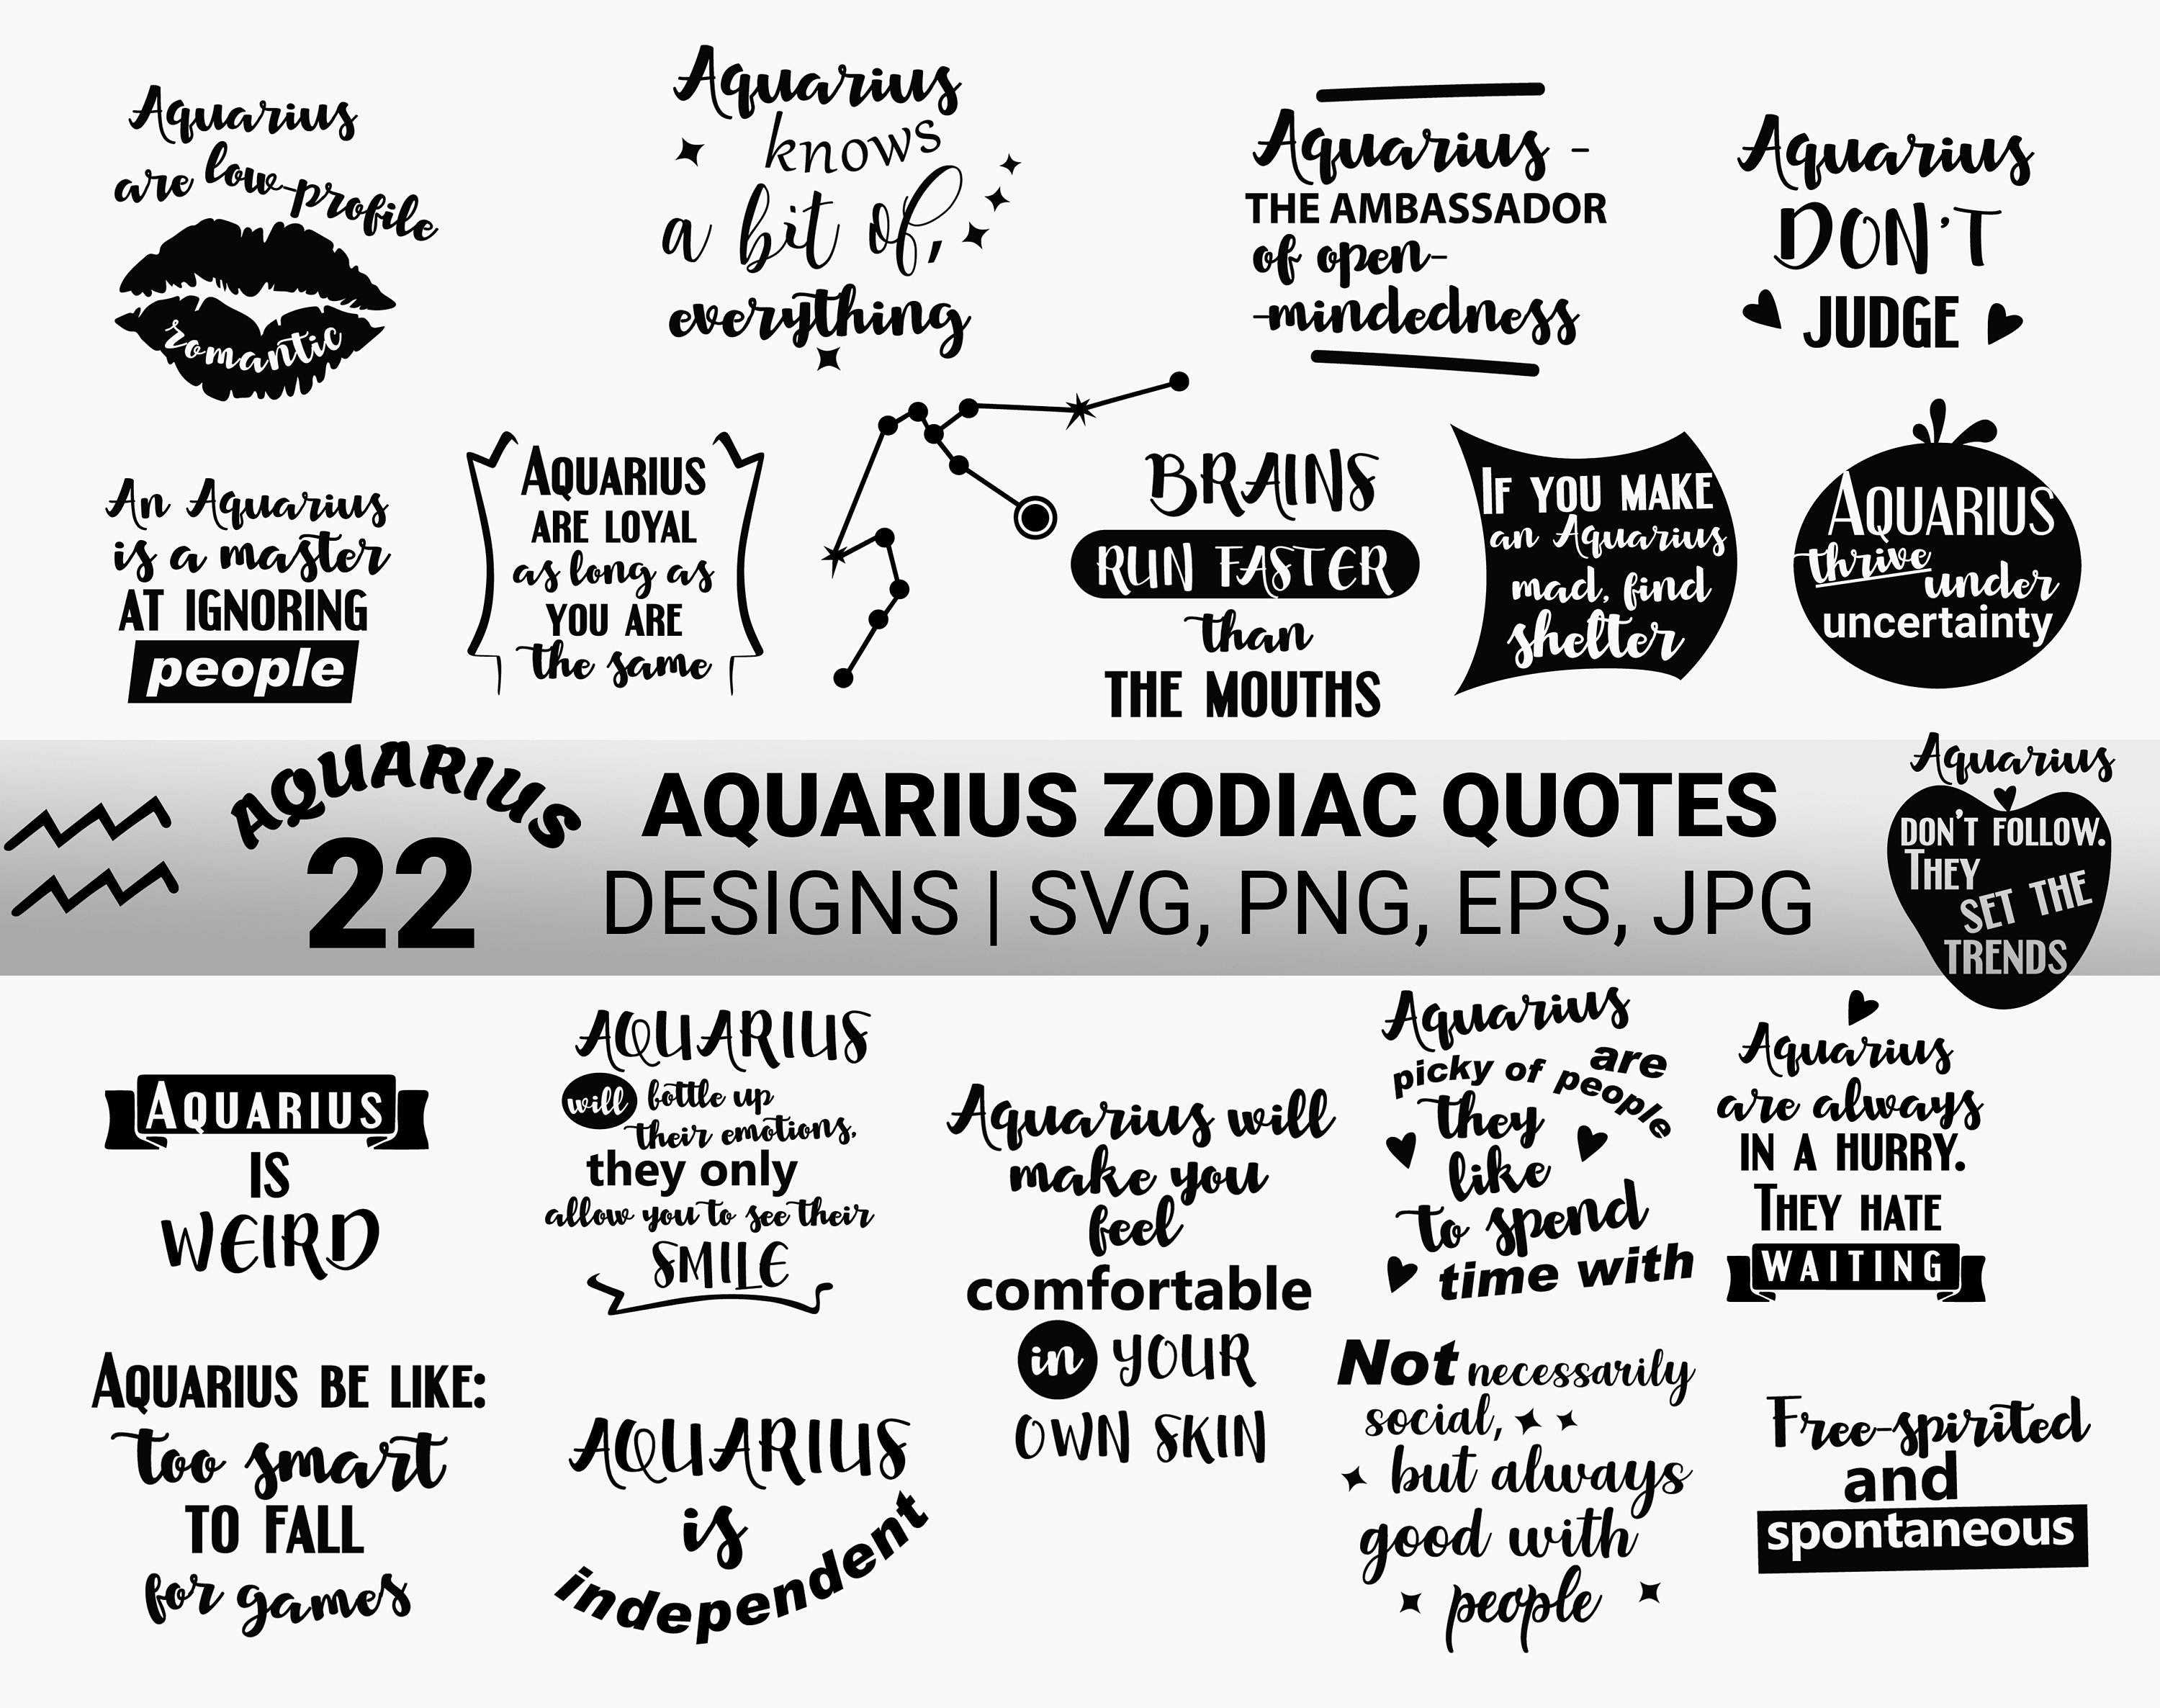 Aquarius
are low-profile
romantic
Aquarius
knows
a bit of,
everything
Aquarius -
THE AMBASSADOR
of open-
-mindedness
Aquarius
DON'T
JUDGE
An Aquarius
is a master
AT IGNORING
people
AQUARIUS
ARE LOYAL
as long as
YOU ARE
the same
BRAINS
RUN FASTER
than
THE MOUTHS
IF YOU MAKE
an Aquarius
mad, find
shelter
AQUARIUS
thrive
under
uncertainty
AQUARIUS
22
AQUARIUS ZODIAC QUOTES
DESIGNS | SVG, PNG, EPS, JPG
Aquarius
DON'T FOLLOW.
THEY
SET THE
TRENDS
AQUARIUS
IS
WEIRD
AQUARIUS
will bottle up
their emotions,
they only
allow you to see their
SMILE
Aquarius will
make you
feel
comfortable
in YOUR
OWN SKIN
Aquarius
are
picky of people
they
like
to spend
time with
Aquarius
are always
IN A HURRY.
THEY HATE
WAITING
AQUARIUS BE LIKE:
too smart
TO FALL
for games
AQUARIUS
is
independent
Not necessarily
social,
but always
good with
people
Free-spirited
and
spontaneous